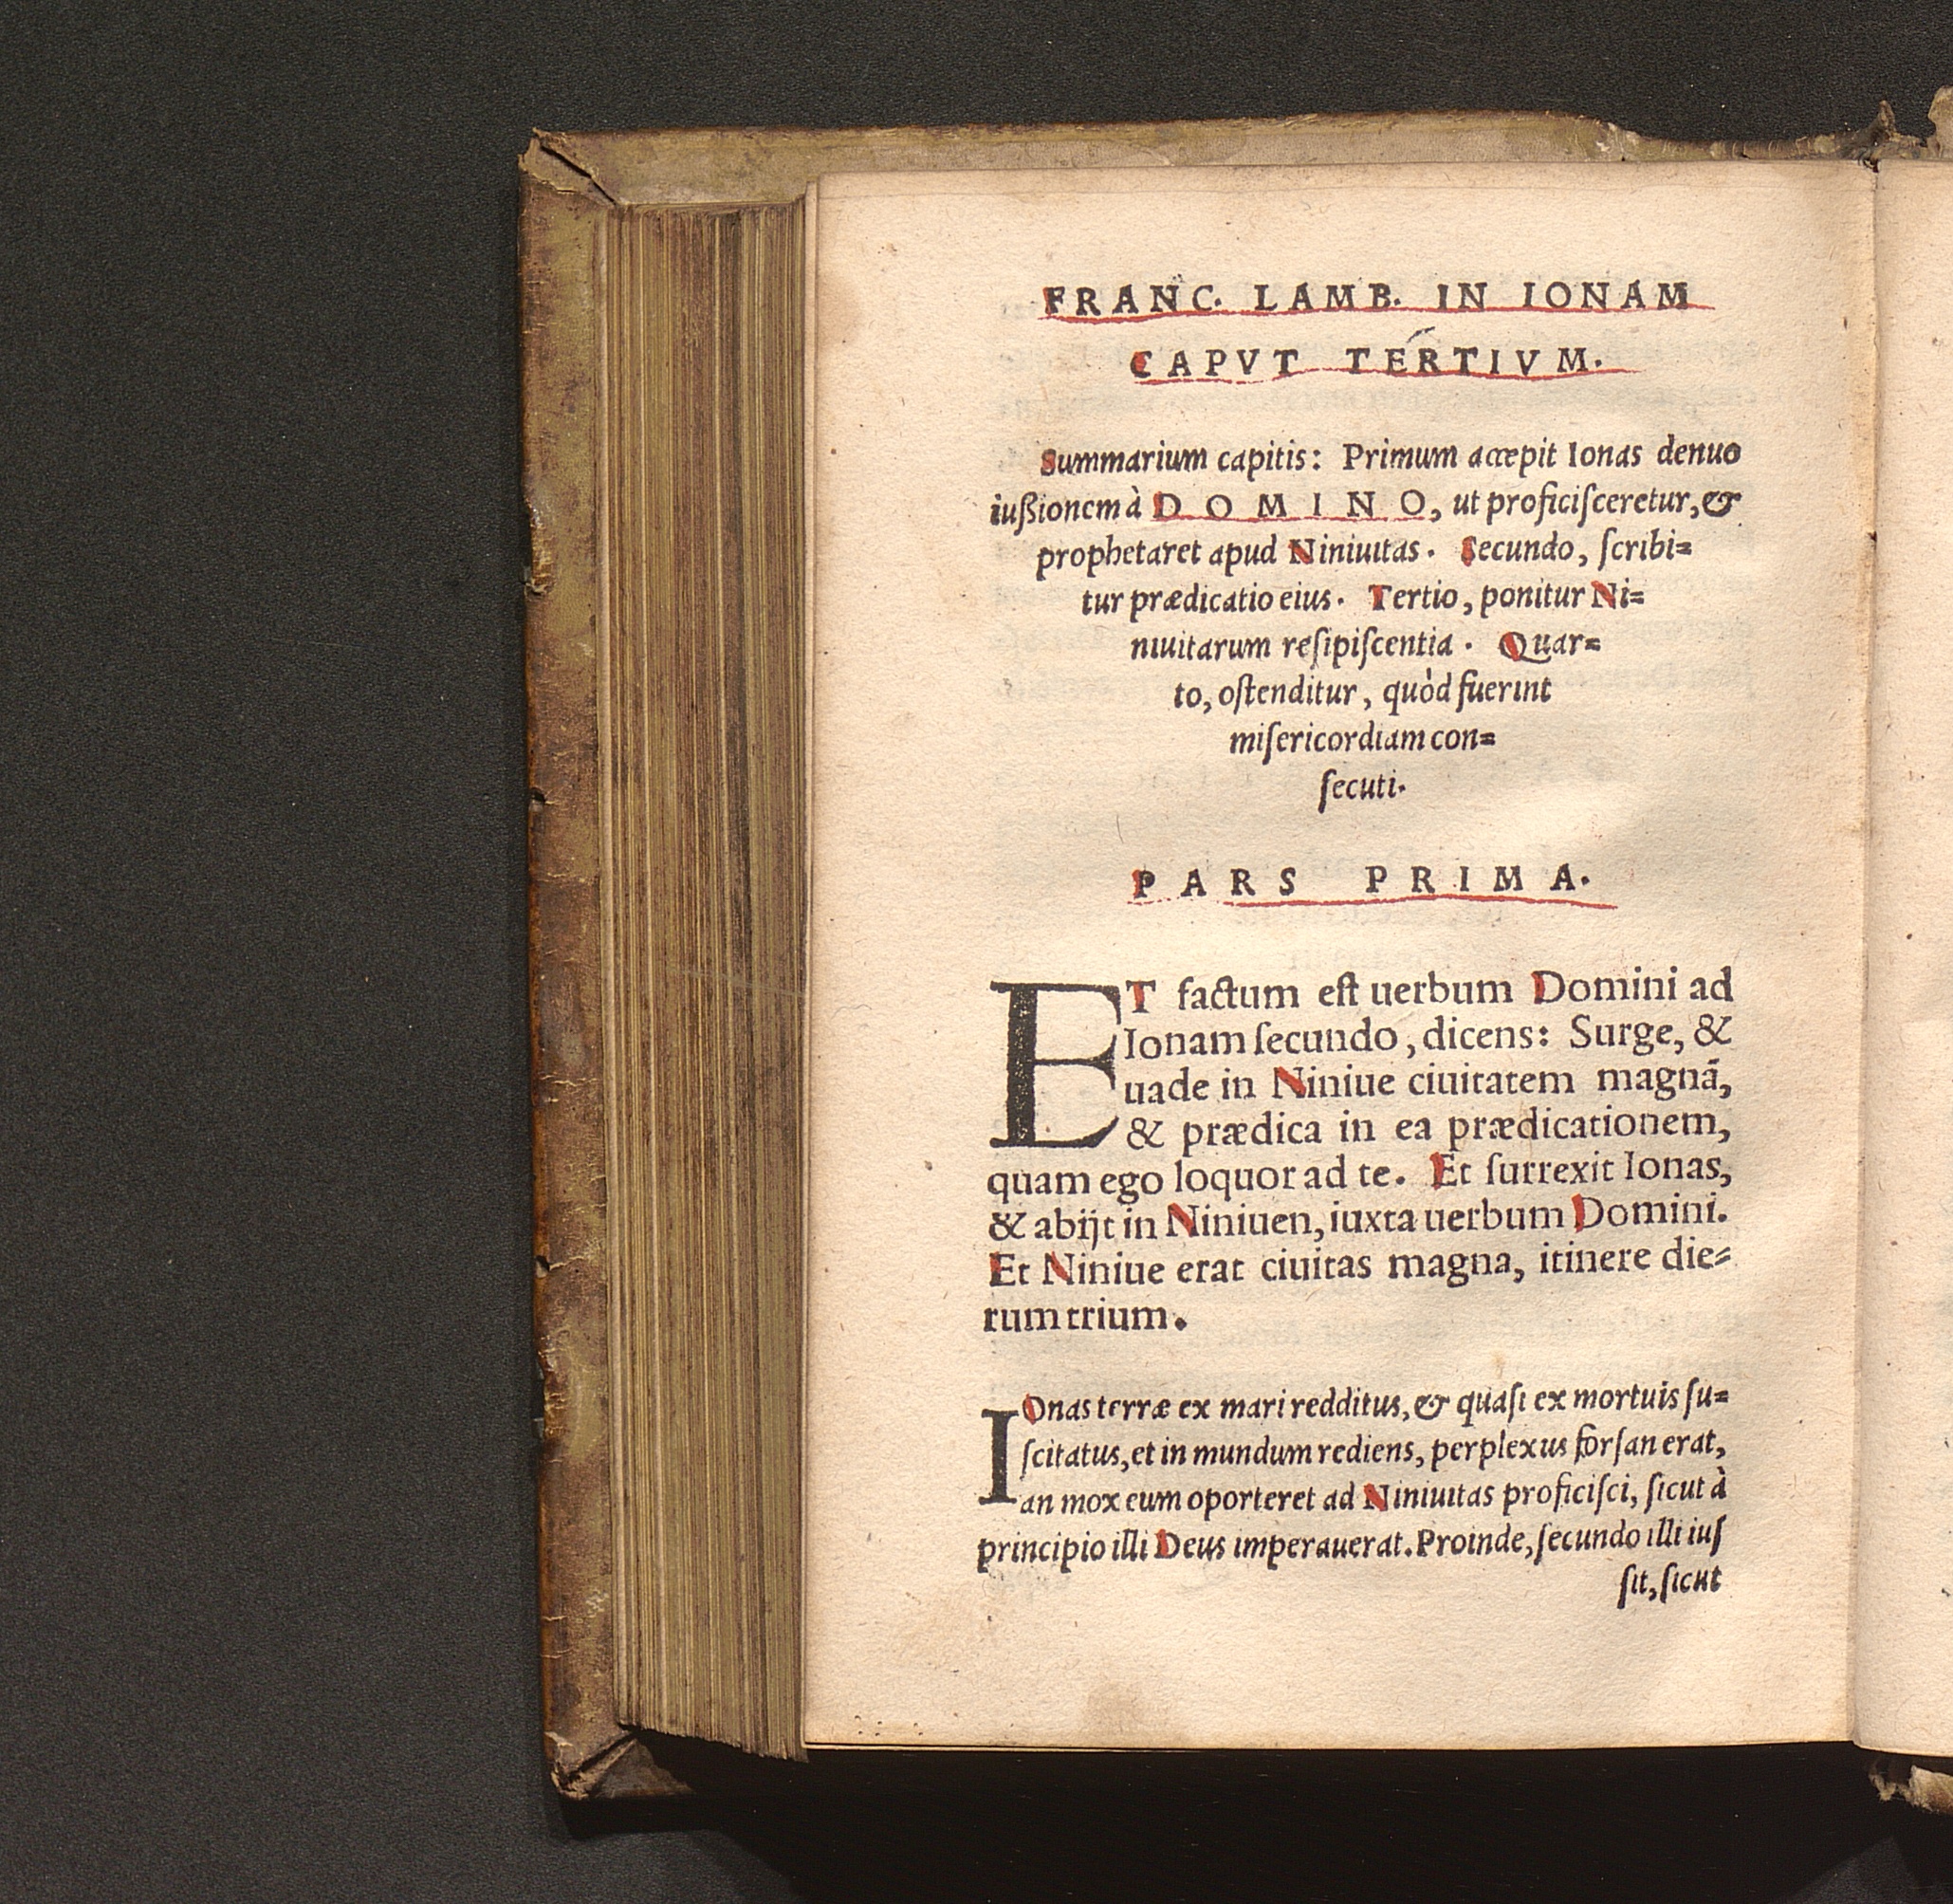 FRANC. LAMB. IN IONAM
CAPVT TERTIVM.
Summarium capitis: Primum accepit Ionas denuo
iußionem à DOMINO, ut proficiſceretur, &
prophetaret apud Niniuitas. Secundo, ſcribi=
tur prædicatio eius. Tertio, ponitur Ni=
niuitarum reſipiſcentia. Quar=
to, oſtenditur, quòd fuerint
miſericordiam con=
ſecuti.
PARS PRIMA.
ET factum eſt uerbum Domini ad
Ionam ſecundo, dicens: Surge, &
uade in Niniue ciuitatem magnā,
& prædica in ea prædicationem,
quam ego loquor ad te. Et ſurrexit Ionas,
& abijt in Niniuen, iuxta uerbum Domini.
Et Niniue erat ciuitas magna, itinere die=
rum trium.
IOnas terræ ex mari redditus, & quaſi ex mortuis ſu=
ſcitatus, et in mundum rediens, perplexus forſan erat,
an mox eum oporteret ad Niniuitas proficiſci, ſicut à
principio illi Deus imperauerat. Proinde, ſecundo illi iuſ
ſit, ſicut